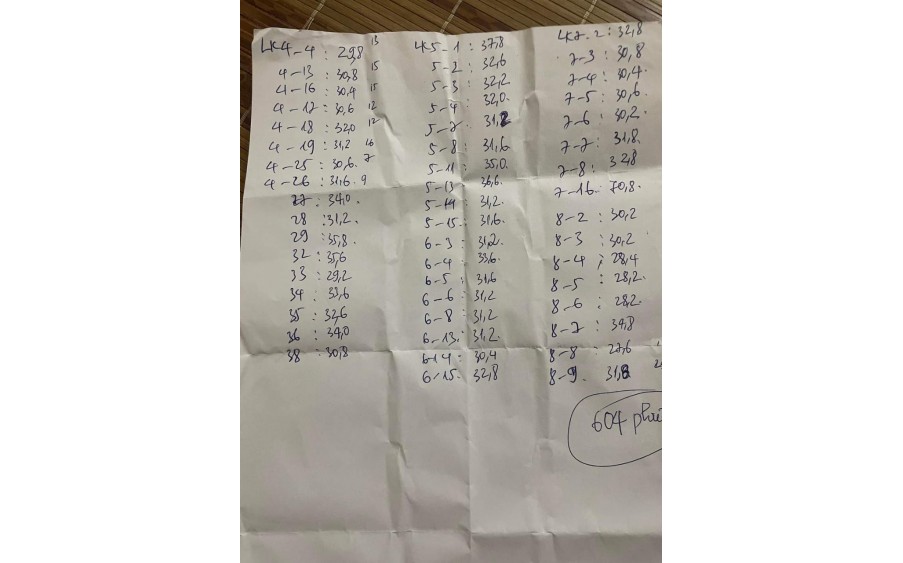 LK4-4 : 29,8 13
4-13 : 30,8 15
4-16 : 30,4 15
4-17 : 30,6 12
4-18 : 32,0 12
4-19 : 31,2 16
4-25 : 30,6. 7
4-26 : 31,6. 9
27 : 34,0.
28 : 31,2.
29 : 35,8.
32 : 35,6
33 : 29,2
34 : 33,6
35 : 32,6
36 : 34,0
38 : 30,8
LK5-1 : 37,8
5-2 : 32,6
5-3 : 32,2
5-4 : 32,0.
5-7 : 31,2
5-8 : 31,6
5-11 : 35,0.
5-13 : 36,6.
5-14 : 31,2.
5-15 : 31,6.
6-3 : 31,2.
6-4 : 33,6.
6-5 : 31,6
6-6 : 31,2
6-8 : 31,2
6-13 : 31,2.
6-14 : 30,4
6-15 : 32,8
LK7-2 : 32,8
7-3 : 30,8
7-4 : 30,4.
7-5 : 30,6.
7-6 : 30,2.
7-7 : 31,8.
7-8 : 32,8
7-16 : 70,8.
8-2 : 30,2
8-3 : 30,2
8-4 : 28,4
8-5 : 28,2.
8-6 : 28,2.
8-7 : 34,8
8-8 : 27,6
8-9. 31,8
604